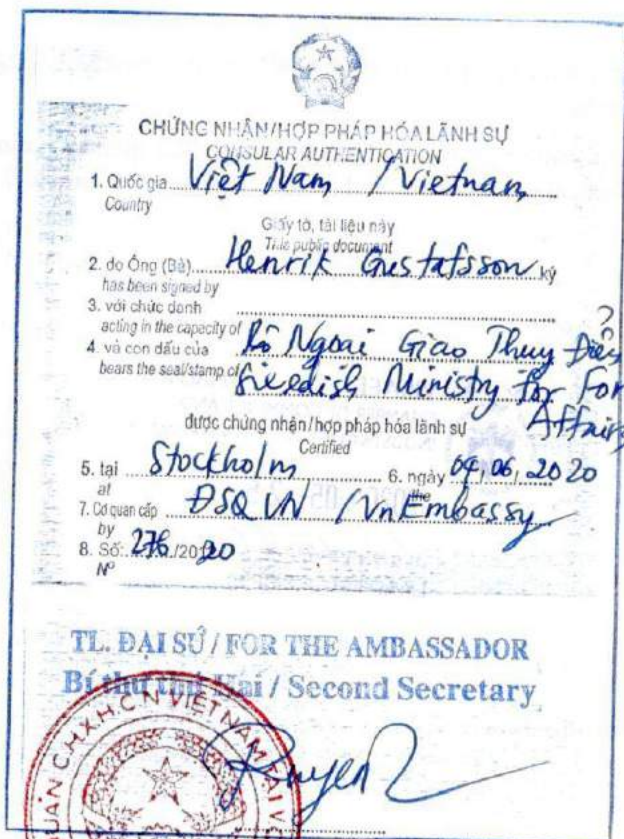 CHỨNG NHẬN/HỢP PHÁP HÓA LÃNH SỰ
CONSULAR AUTHENTICATION
1. Quốc gia Việt Nam / Vietnam
Country
Giấy tờ, tài liệu này
This public document
2. do Ông (Bà) Henrik Gustafsson ký
has been signed by
3. với chức danh
acting in the capacity of
4. và con dấu của Bộ Ngoại Giao Thụy Điển
bears the seal/stamp of Swedish Ministry for For
Affairs
được chứng nhận/hợp pháp hóa lãnh sự
Certified
5. tại Stockholm 6. ngày 04/06/2020
at the
7. Cơ quan cấp ĐSQ VN / Vn Embassy
by
8. Số: 276/2020
Nº
TL. ĐẠI SỨ / FOR THE AMBASSADOR
Bí thư thứ Hai / Second Secretary
QUÁN C.H.X.H.C.N VIỆT NAM TẠI